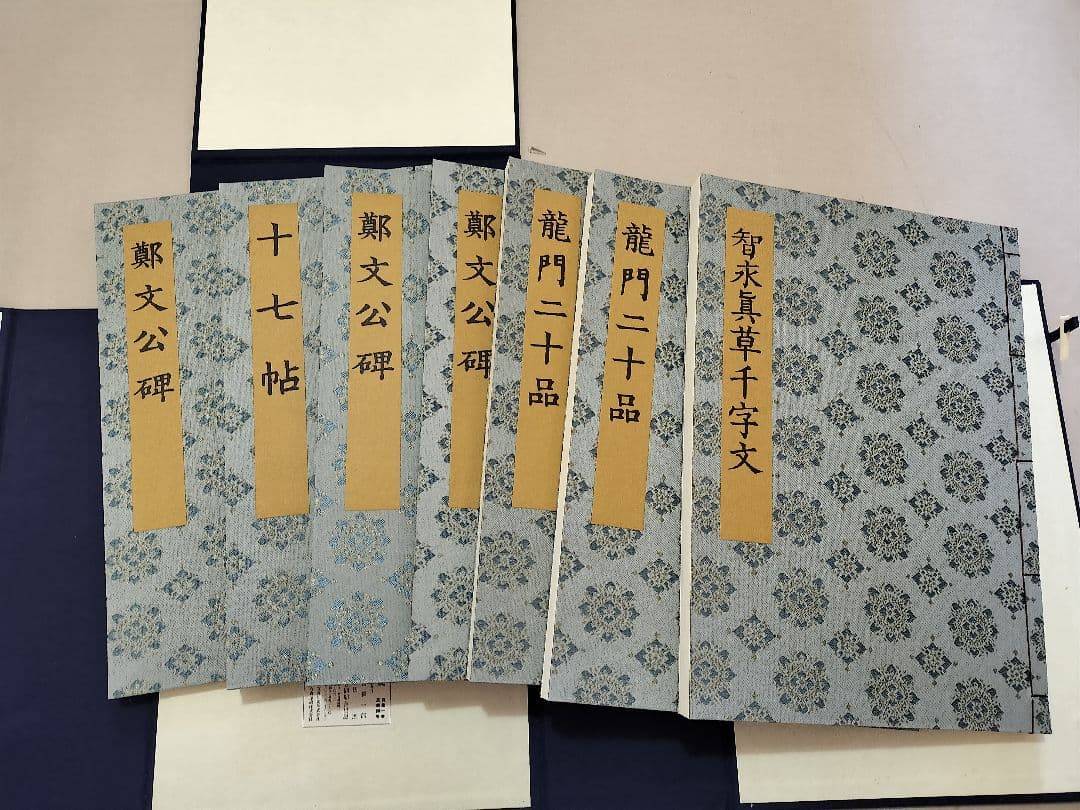 鄭文公碑
十七帖
鄭文公碑
鄭文公碑
龍門二十品
龍門二十品
智永眞草千字文